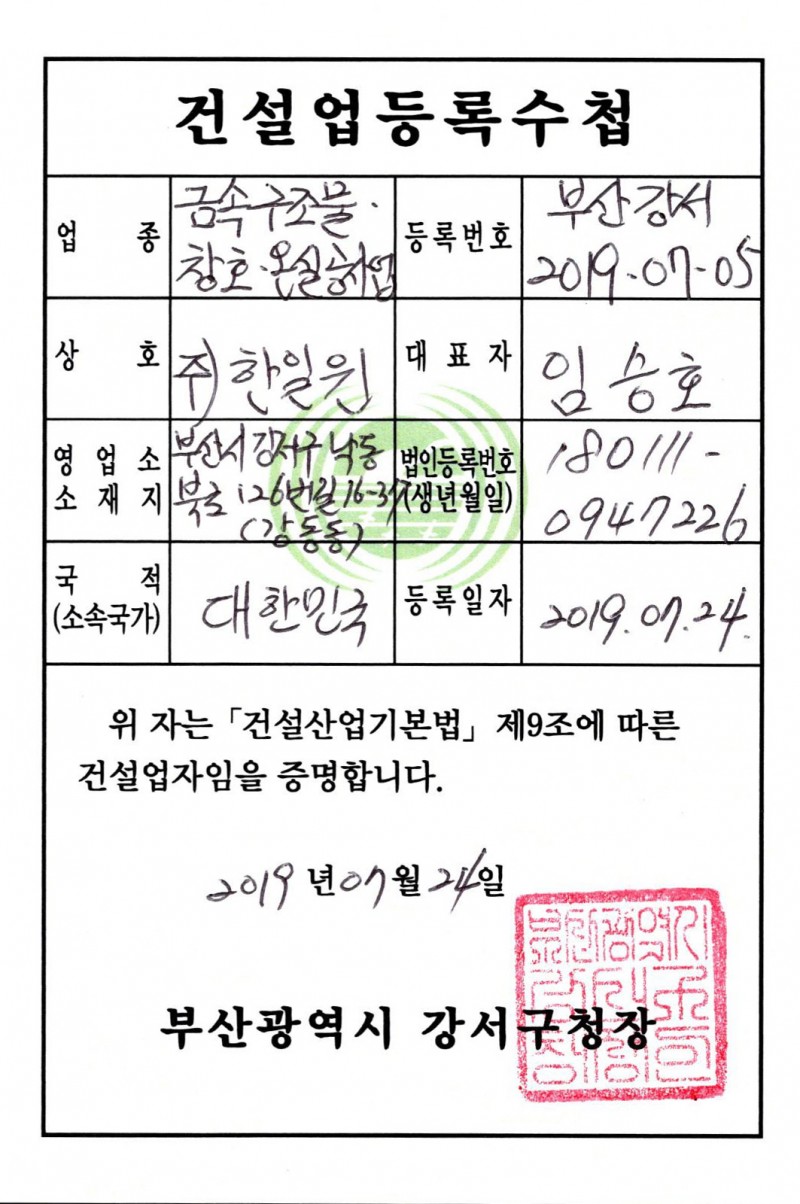 건설업등록수첩
업 종
금속구조물·
창호·온실공사업
등록번호
부산강서
2019-07-05
상 호
주) 한일원
대 표 자
임승호
영 업 소
소 재 지
부산시 강서구 낙동
북로 126번길 16-37
(강동동)
법인등록번호
(생년월일)
180111-
0947226
국 적
(소속국가)
대한민국
등록일자
2019.07.24.
위 자는 「건설산업기본법」 제9조에 따른
건설업자임을 증명합니다.
2019 년 07 월 24 일
부산광역시 강서구청장